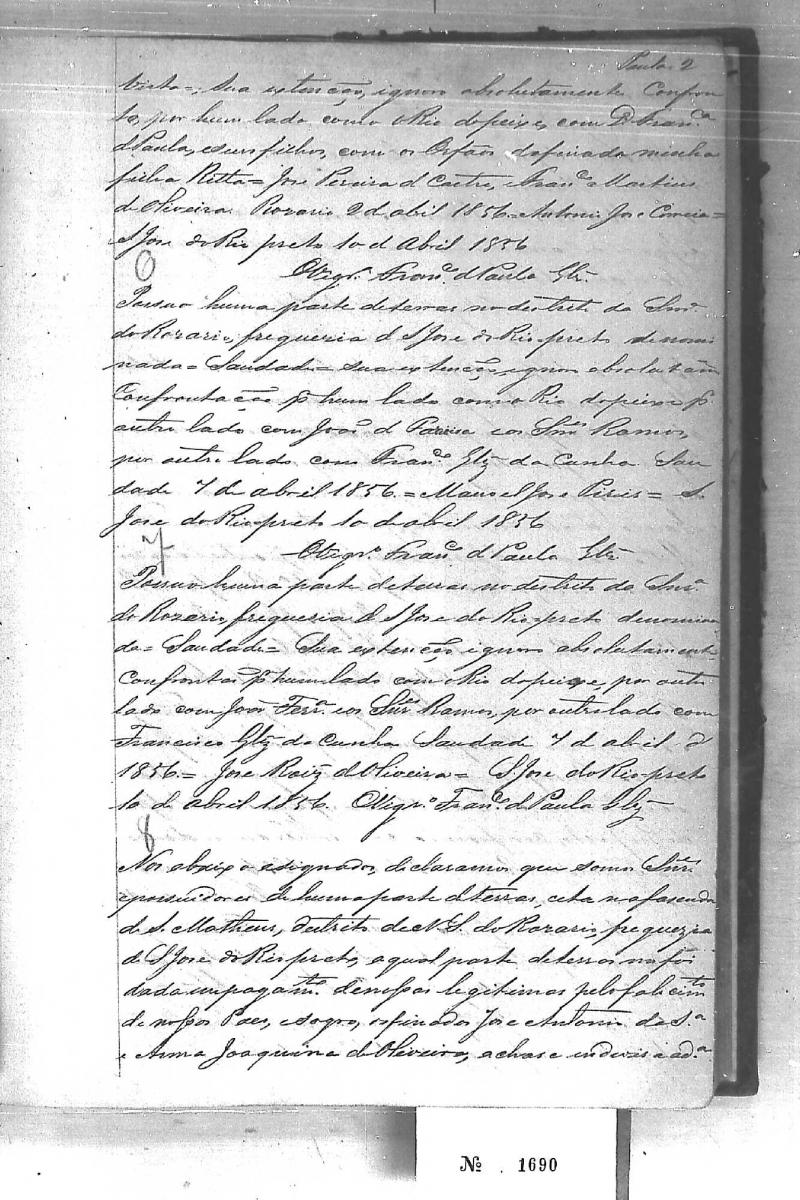 Paula 2
Vista = sua extenção, ignoro absolutamente Confron
ta, por hum lado com o Rio do peixe, com D. Fran.ca
d Paula, e seus filhos, com os Orfãos da finada minha
filha Ritta = Jose Pereira d Castro, e Fran.co Martins
de Oliveira. Rozario 2 d abil 1856 = Antonio Jose Correia =
S Jose do Rio preto 10 d Abil 1856
6
O Vigr.o Fran.co d Paula Glz
Possuo huma parte de terras no destrito da Snr.a
do Rozario, freguezia d S Jose do Rio preto denomi
nada = Saudade = sua extenção ignoro absolutam
Confrontação p.r hum lado com o Rio do peixe p.r
outro lado com João d e os Snr.es Ramos,
por outro lado com Fran.co Glz da Cunha Sau
dade 7 de abril 1856. = Manoel Jose Pires = S.
Jose do Rio preto 10 de abril 1856
7
O Vigr.o Fran.co d Paula Glz
Possuo huma parte de terras no destrito da Snr.a
do Rozario freguezia d S Jose do Rio preto denomina
da = Saudade = Sua extenção ignoro absolutamente
Confrontas p.r hum lado com o Rio do peixe, por outro
lado com João Ferr.a e os Snr.es Ramos, por outro lado com
Francisco Glz da Cunha Saudade 7 d abril d
1856 = Jose Roiz d Oliveira = S. Jose do Rio preto
10 d abril 1856. O Vigr.o Fran.co d Paula Glz
8
Nos abaixo asignados, declaramos que somos Snr.es
e possuidores de huma parte d terras, cita na fasenda
de S. Matheus, destrito de N. S. do Rozario, freguezia
de S Jose do Rio preto, a qual parte de terras nos foi
dada em pagam.to de nossas legitimas pelo falecim.to
de nossos Paes, e sogro, os finados Jose Antonio da S.a
e Anna Joaquina d Oliveira, achase indevisa a d.a
Nº 1690